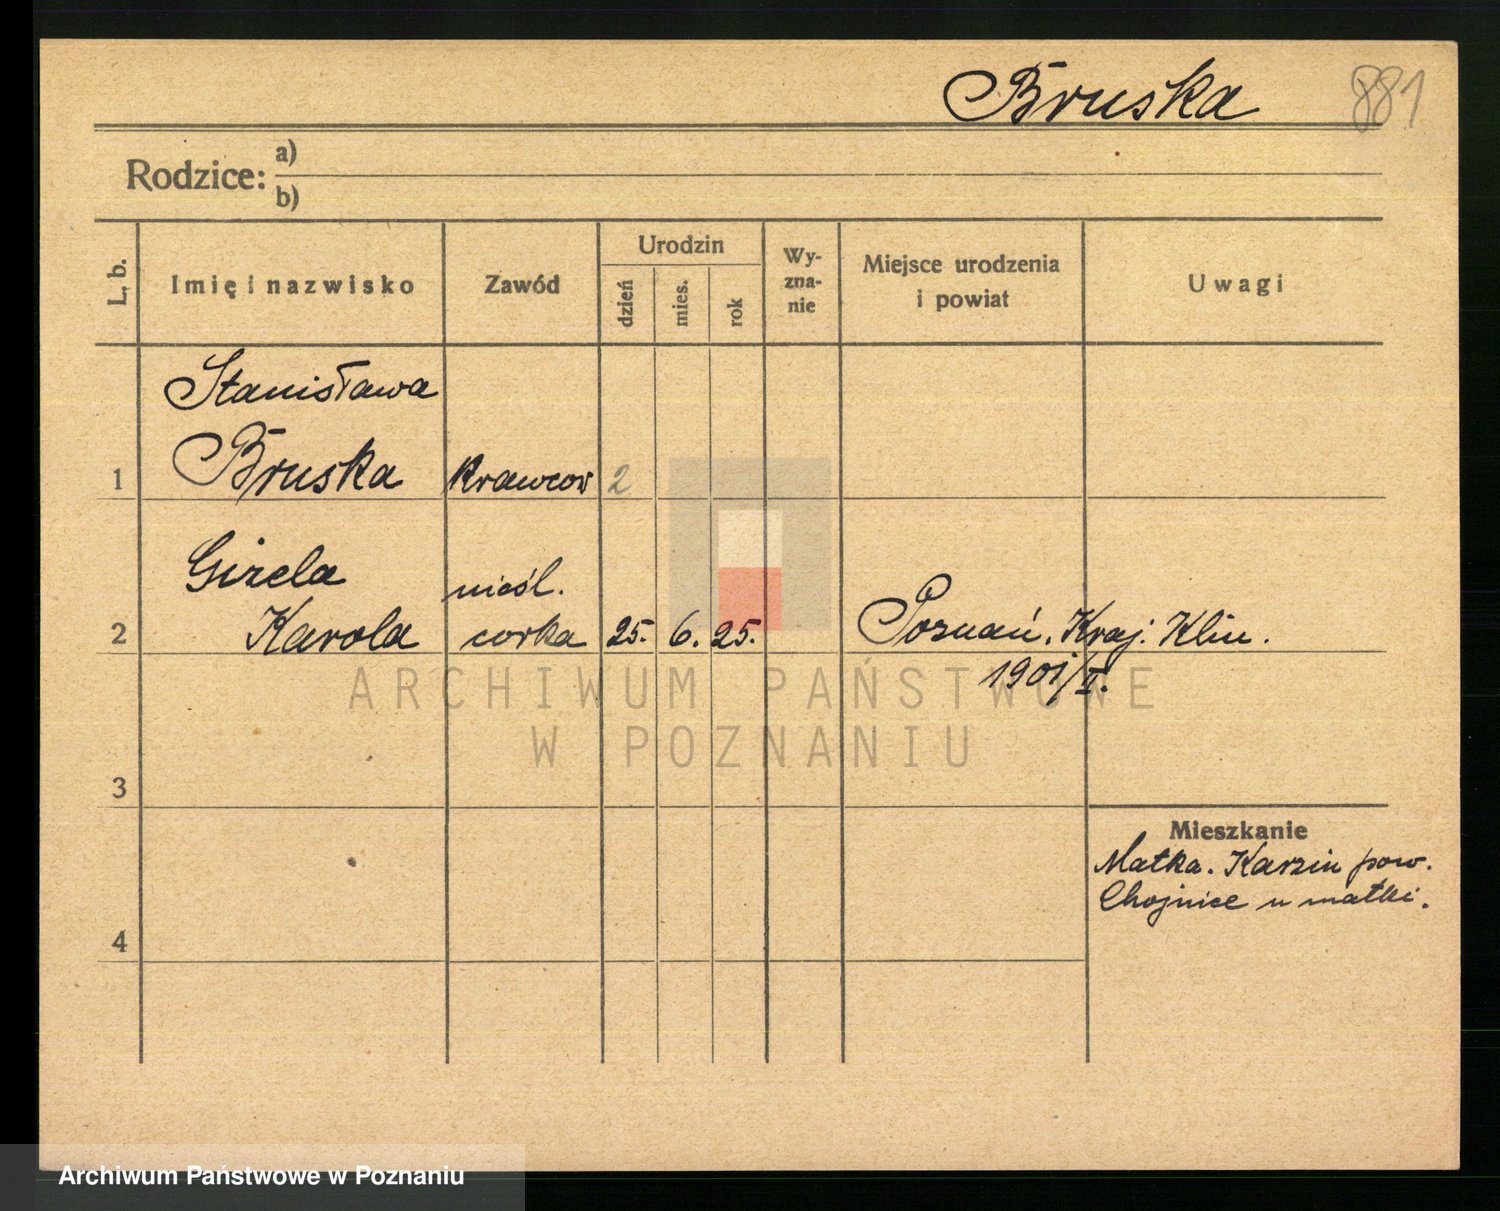 Bruska 881
Rodzice: a)
b)
L. b. Imię i nazwisko Zawód Urodzin dzień mies. rok Wy-zna-nie Miejsce urodzenia i powiat Uwagi
Stanisława
1 Bruska Krawcow 2
Gizela nieśl.
2 Karola corka 25. 6. 25. Poznań. Kraj. Klin.
1901/II.
ARCHIWUM PAŃSTWOWE
W POZNANIU
3
Mieszkanie
Matka. Karzin pow.
Chojnice u matki.
4
Archiwum Państwowe w Poznaniu